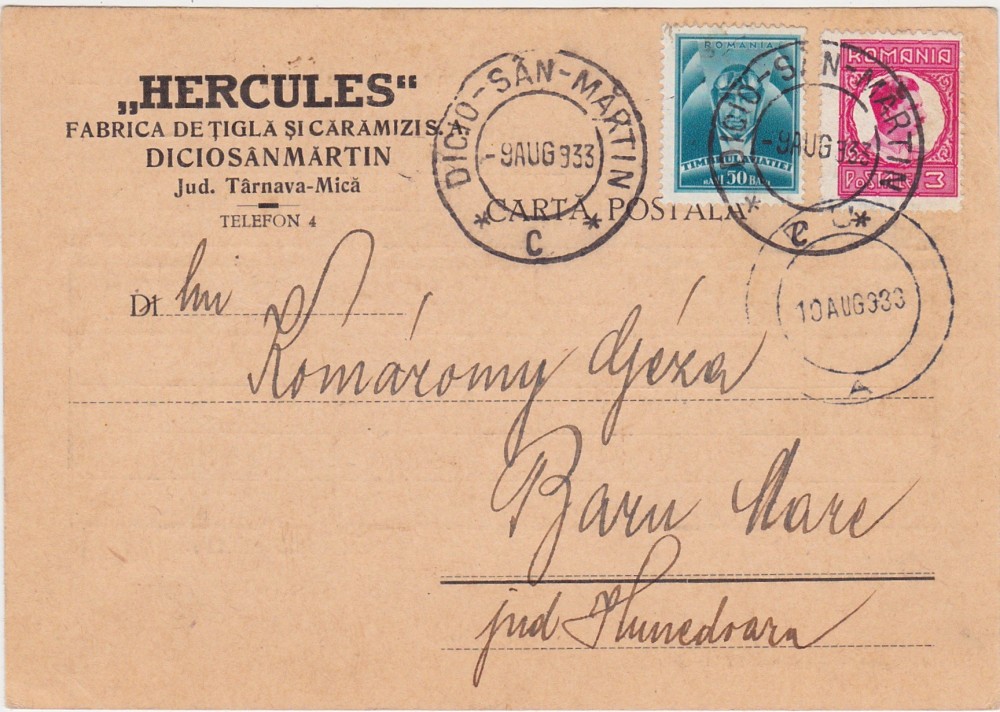 „HERCULES“
FABRICA DE ȚIGLĂ ȘI CĂRĂMIZI S. A.
DICIOSÂNMĂRTIN
Jud. Târnava-Mică
TELEFON 4
DICIO-SÂN-MĂRTIN
-9AUG933
* C *
ROMANIA
TIMBRUL AVIAȚIEI
BANI 50 BANI
DICIO-SÂN-MĂRTIN
-9AUG933
* C *
ROMANIA
POSTA LEI 3
CARTA POSTALA
10AUG933
A
Dl
Komáromy Géza
Baru Mare
jud Hunedoara